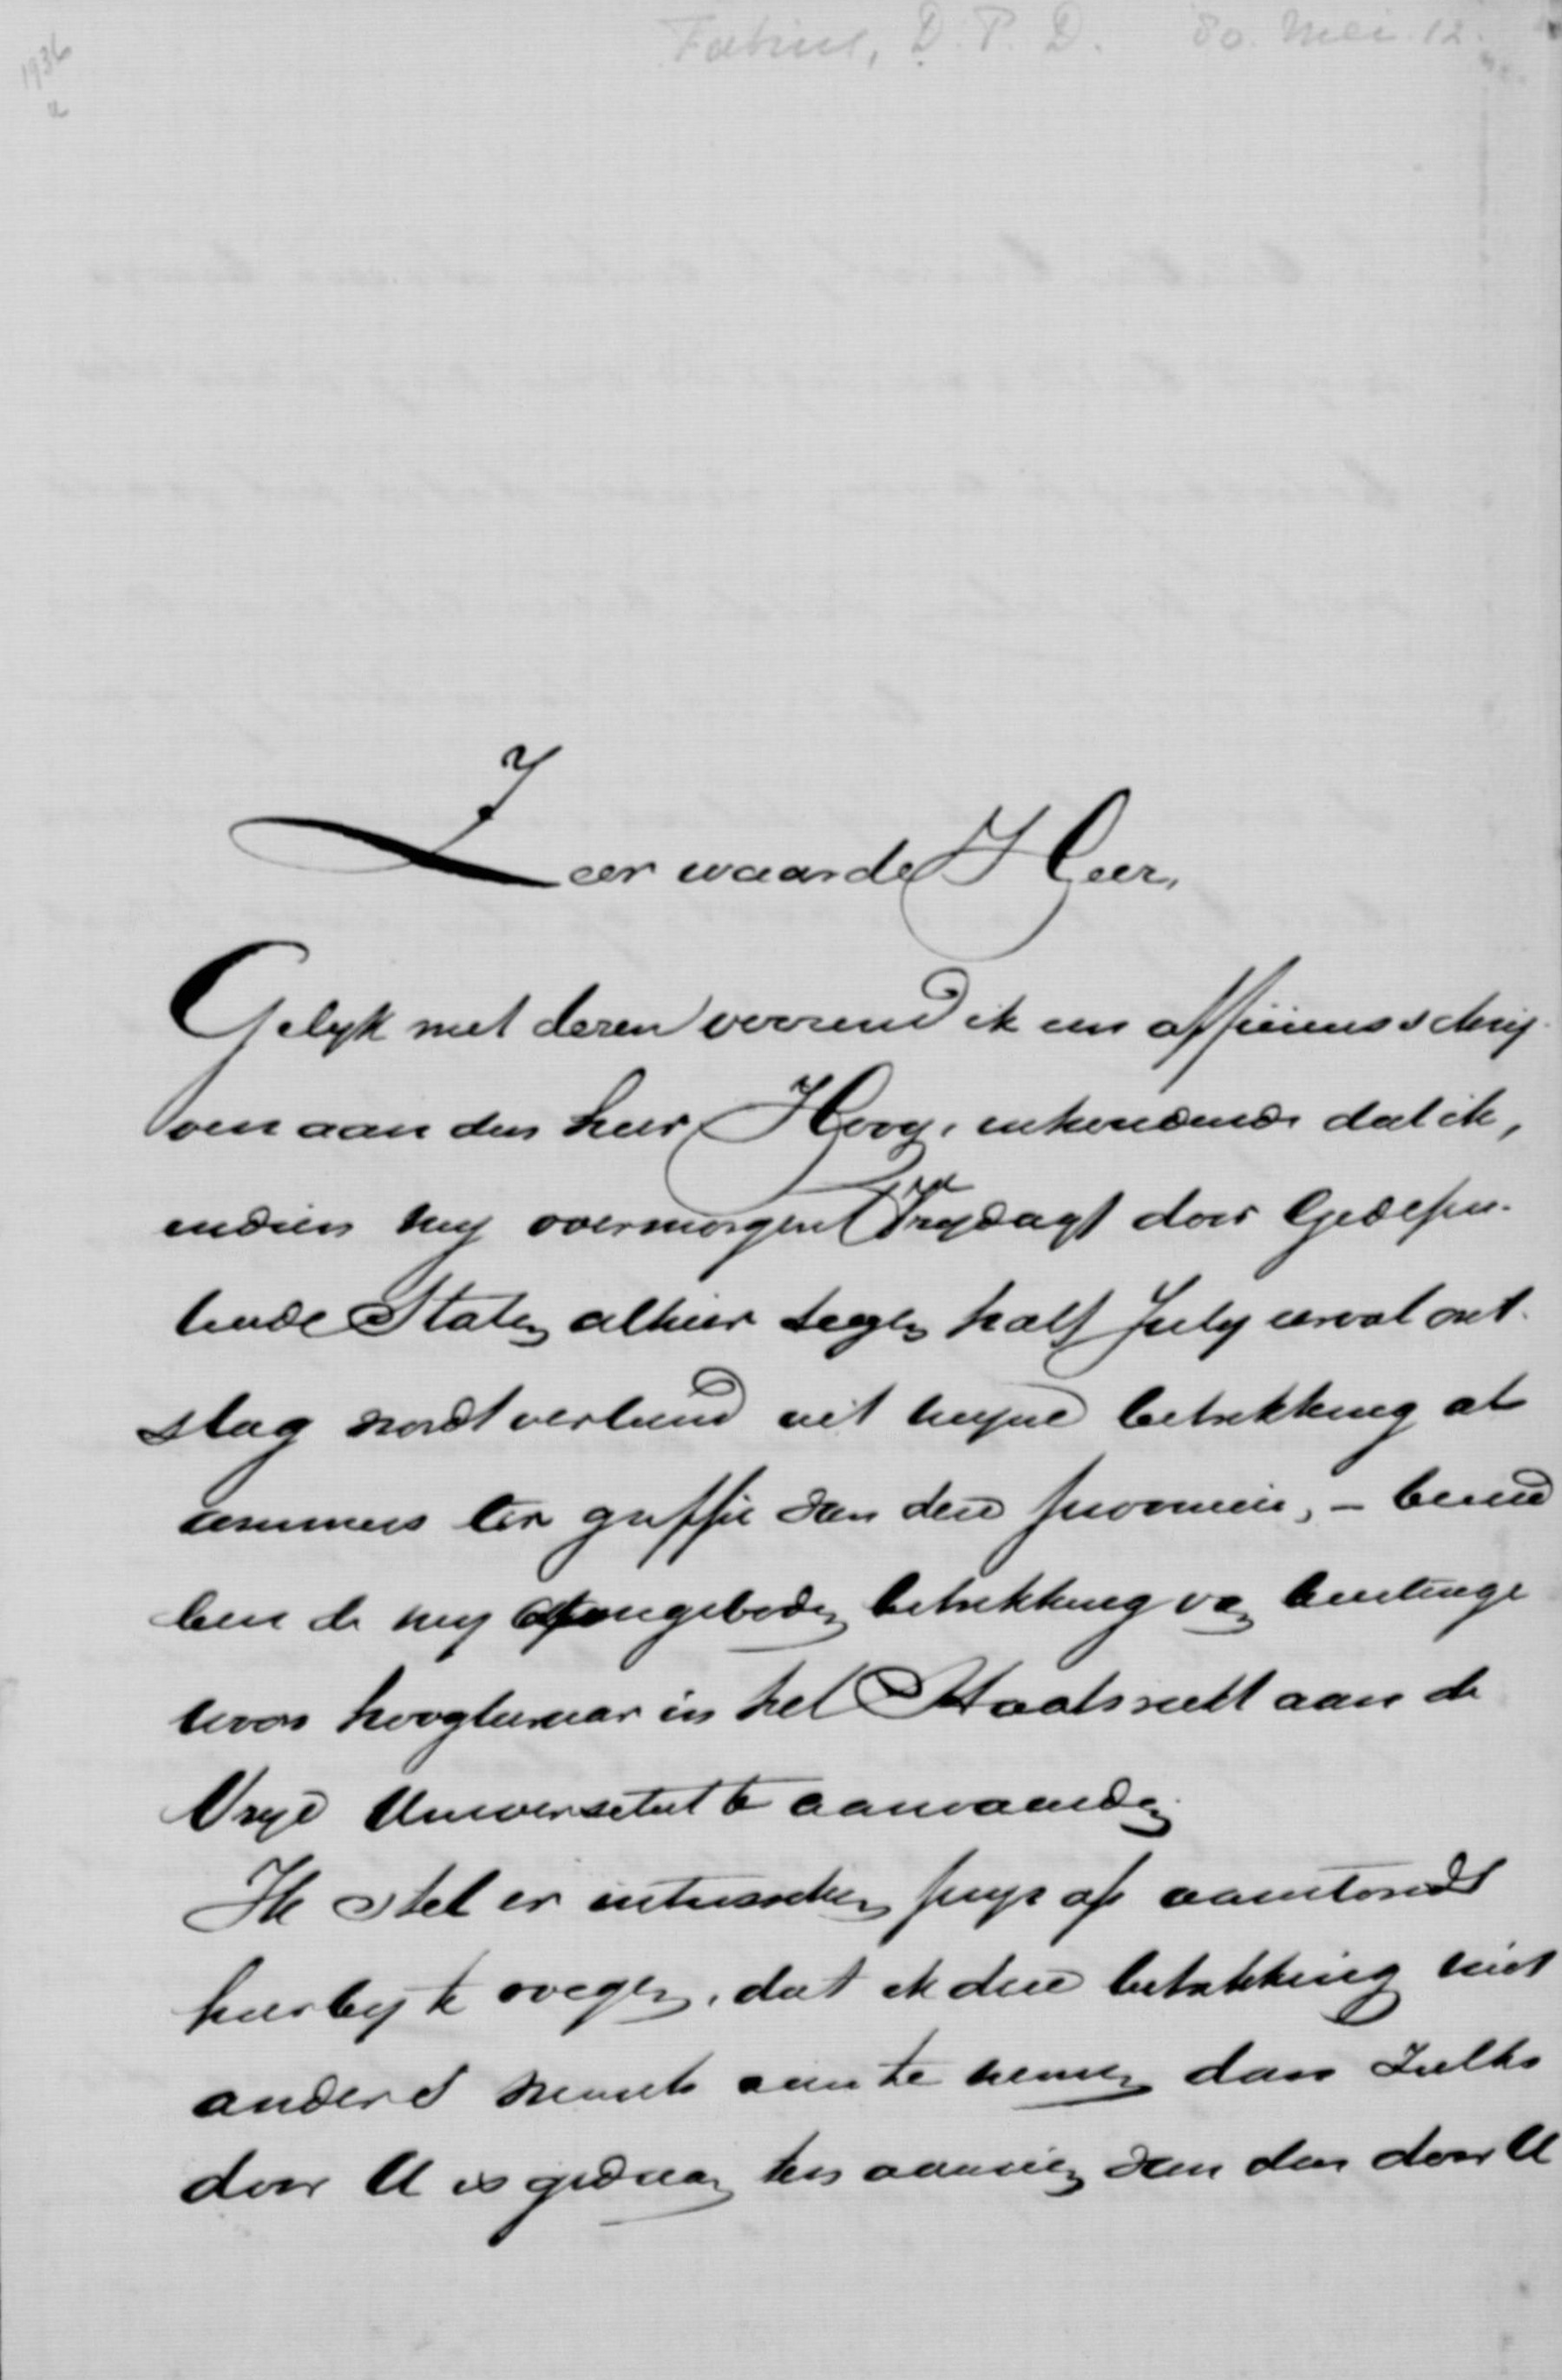 1936
a
Fabius, D. P. D. 80. Mei. 12.
Zeer waarde Heer,
Gelyk met dezen verzend ik een officieus schry-
ven aan den heer Hovy, inhoudende dat ik,
indien my overmorgen Vrydag door Gedepu-
teerde Staten alhier tegen half July eervol ont-
slag wordt verleend uit myne betrekking als
commies ter griffie van deze provincie, – bereid
ben de my aangeboden betrekking van
hoogleeraar in het Staatsrecht aan de
Vrye Universiteit te aanvaarden.
Ik stel er intusschen prys op aanstonds
hierby te voegen, dat ik deze betrekking niet
anders wensch aan te nemen dan zulks
door U is gedaan ten aanzien van den door U